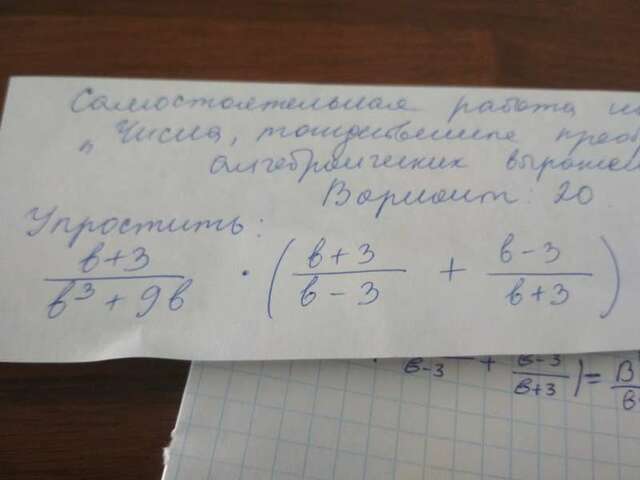 Самостоятельная работа по
"Числа, тождественные преоб
алгебраических выражен
Вариант: 20.
Упростить:
в+3 / в³+9в · ( в+3 / в-3 + в-3 / в+3 )
в-3 + в-3 / в+3 ) = в